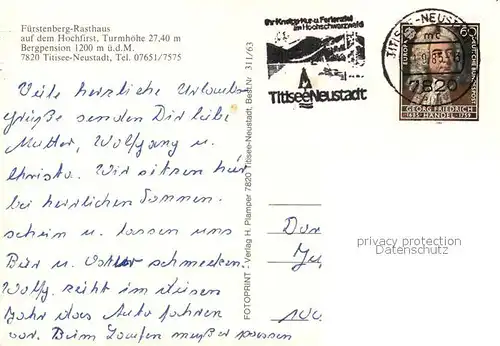 Fürstenberg-Rasthaus
auf dem Hochfirst, Turmhöhe 27,40 m
Bergpension 1200 m ü.d.M.
7820 Titisee-Neustadt, Tel. 07651/7575
Ihr Kneipp-Kur-u. Ferienziel
im Hochschwarzwald
Titisee Neustadt
TITISEE-NEUSTADT
mc
7820
DEUTSCHE BUNDESPOST
GEORG FRIEDRICH
1685 HANDEL 1759
Viele herzliche Urlaubs
grüße senden Dir liebe
Mutter, Wolfgang u.
Christa. Wir sitzen hier
bei herrlichen Sonnen.
schein u. lassen uns
Bier u. schmecken.
Wolfg. zieht im diesen
Jahr das Auto fahren
vor. Beim Laufen muß er passen
FOTOPRINT - Verlag H. Plamper 7820 Titisee-Neustadt, Best.Nr. 311/63
privacy protection
Datenschutz